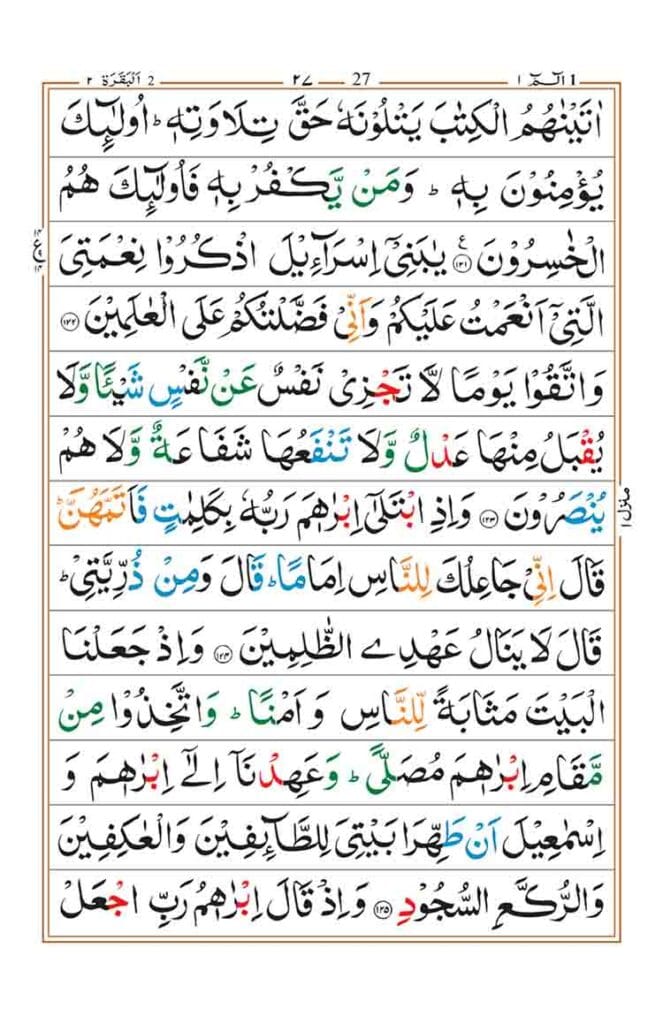 1 الٓمّٓ ١
27 ٢٧
2 اَلْبَقَرَة ٢
اٰتَیْنٰهُمُ الْكِتٰبَ یَتْلُوْنَهٗ حَقَّ تِلَاوَتِهٖ ؕ اُولٰٓىِٕكَ
یُؤْمِنُوْنَ بِهٖ ؕ وَمَنْ یَّكْفُرْ بِهٖ فَاُولٰٓىِٕكَ هُمُ
الْخٰسِرُوْنَ ﴿١٢١﴾ ع یٰبَنِیْۤ اِسْرَآءِیْلَ اذْكُرُوْا نِعْمَتِیَ
الَّتِیْۤ اَنْعَمْتُ عَلَیْكُمْ وَاَنِّیْ فَضَّلْتُكُمْ عَلَی الْعٰلَمِیْنَ ﴿١٢٢﴾
وَاتَّقُوْا یَوْمًا لَّا تَجْزِیْ نَفْسٌ عَنْ نَّفْسٍ شَیْـًٔا وَّلَا
یُقْبَلُ مِنْهَا عَدْلٌ وَّلَا تَنْفَعُهَا شَفَاعَةٌ وَّلَا هُمْ
یُنْصَرُوْنَ ﴿١٢٣﴾ وَاِذِ ابْتَلٰۤی اِبْرٰهٖمَ رَبُّهٗ بِكَلِمٰتٍ فَاَتَمَّهُنَّ ؕ
قَالَ اِنِّیْ جَاعِلُكَ لِلنَّاسِ اِمَامًا ؕ قَالَ وَمِنْ ذُرِّیَّتِیْ ؕ
قَالَ لَا یَنَالُ عَهْدِی الظّٰلِمِیْنَ ﴿١٢٤﴾ وَاِذْ جَعَلْنَا
الْبَیْتَ مَثَابَةً لِّلنَّاسِ وَ اَمْنًا ؕ وَاتَّخِذُوْا مِنْ
مَّقَامِ اِبْرٰهٖمَ مُصَلًّی ؕ وَعَهِدْنَاۤ اِلٰۤی اِبْرٰهٖمَ وَ
اِسْمٰعِیْلَ اَنْ طَهِّرَا بَیْتِیَ لِلطَّآىِٕفِیْنَ وَالْعٰكِفِیْنَ
وَالرُّكَّعِ السُّجُوْدِ ﴿١٢٥﴾ وَاِذْ قَالَ اِبْرٰهٖمُ رَبِّ اجْعَلْ
منزل ١